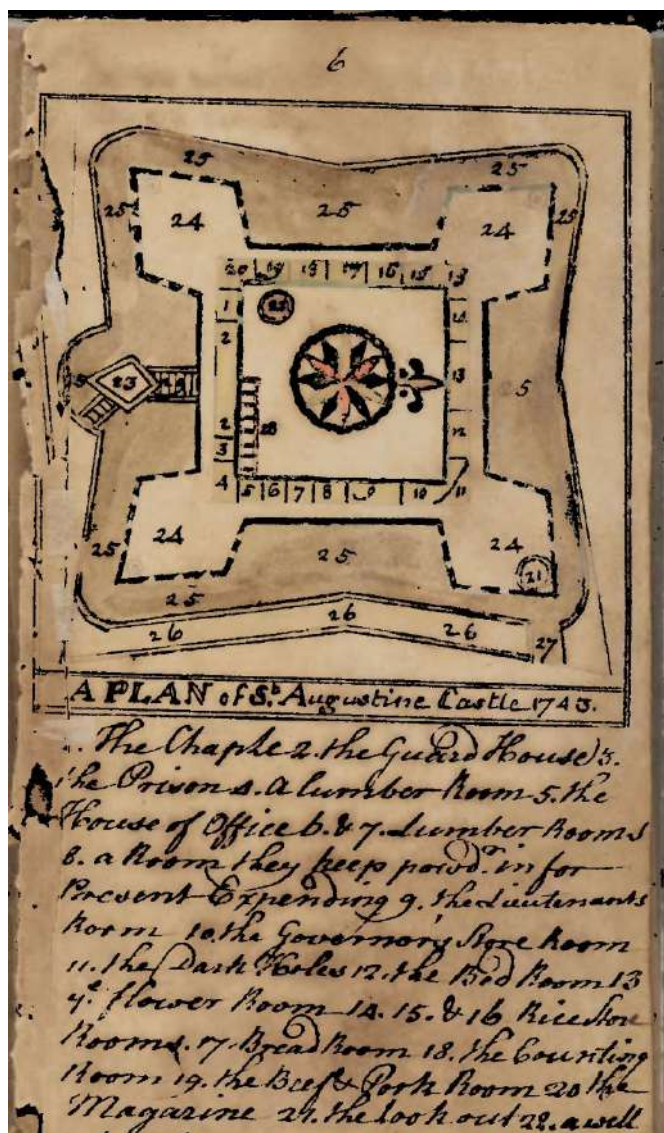 6
25 25
25 24 25 24 25
20 19 18 17 16 15 13
1 22 14
2
23 13 5
2 28 12
3
4 5 6 7 8 9 10 11
24 24
25 25 21
25
26 26 26 27
A PLAN of St. Augustine Castle 1743.
1. The Chaple 2. the Guard House 3.
the Prison 4. a lumber Room 5. the
House of Office 6. & 7. Lumber Rooms
8. a Room they keep powdr. in for
Present Expending 9. the Lieutenants
Room 10. the Governor's Store Room
11. the Dark Holes 12. the Bed Room 13
ye. flower Room 14. 15. & 16 Rice Store
Rooms. 17. Bread Room 18. the Counting
Room 19. the Beef & Pork Room 20 the
Magazine 21. the look out 22. a well